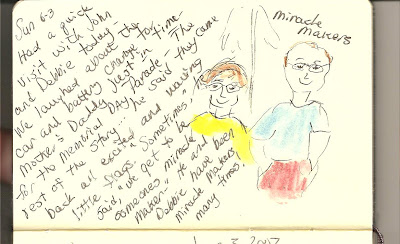 Sun 6•3
Had a quick
visit with John
and Debbie today -
We laughed about the
car and battery change for
Mother's Daddy just in time
for the Memorial Day Parade - The
rest of the story... he said they came
back all excited and waving
little flags. Sometimes, he
said, "we get to be
someones miracle
maker -" He and
Debbie have been
miracle makers
many times!
miracle
makers
2007